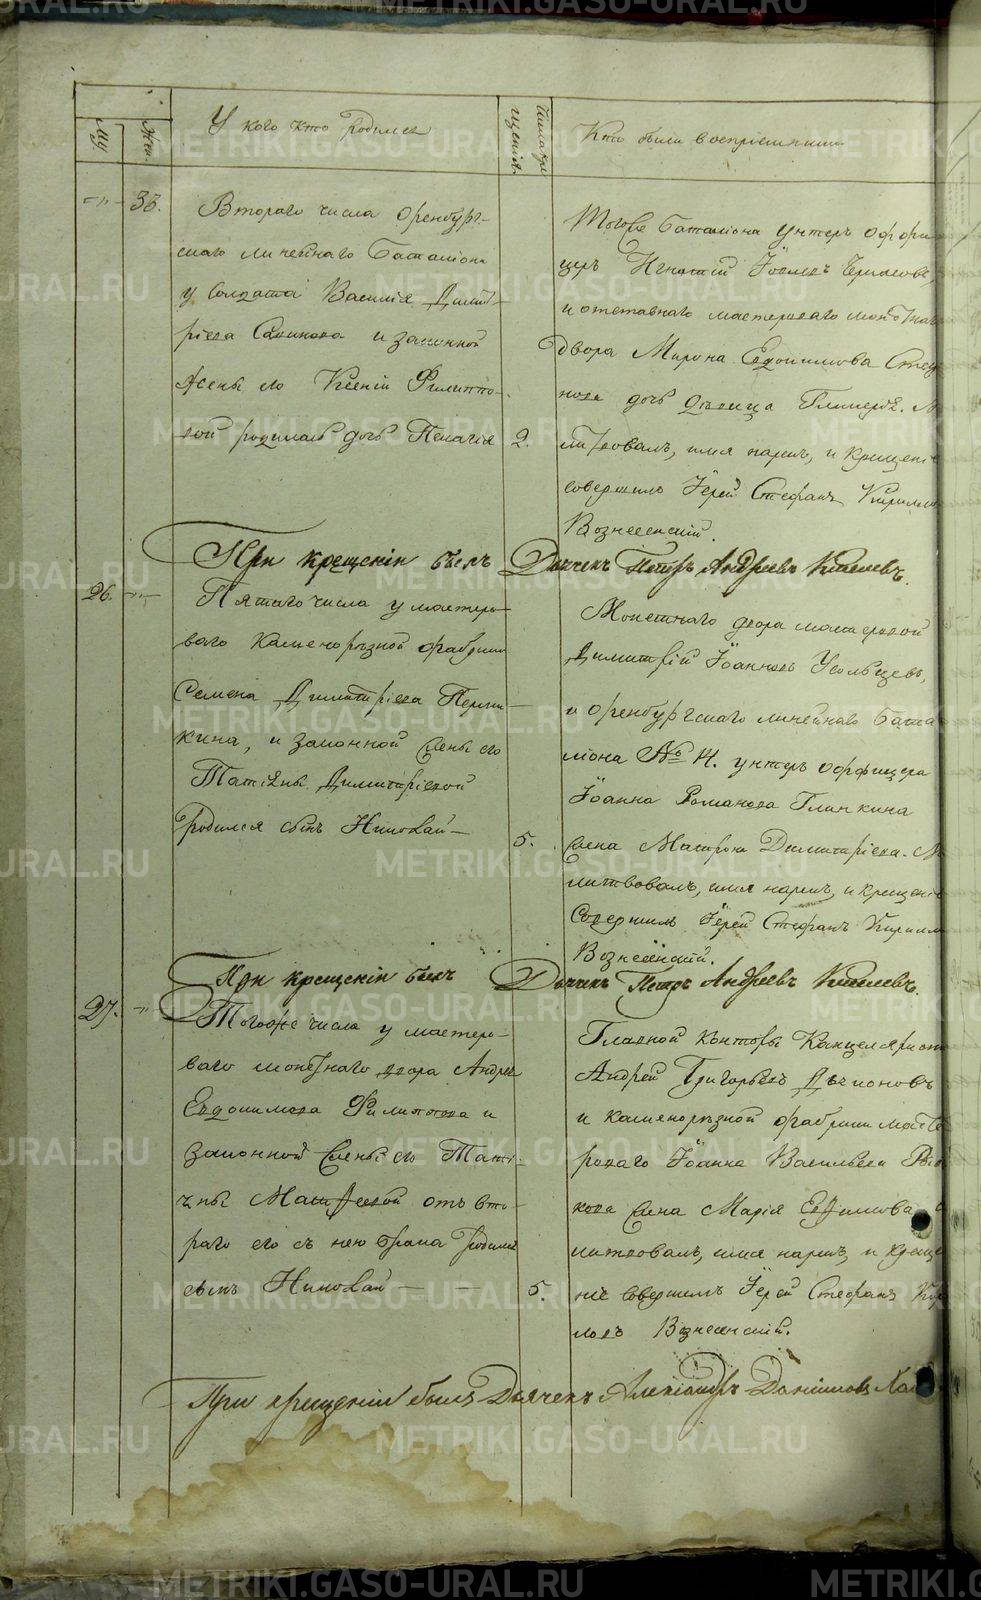 METRIKI.GASO-URAL.RU
Му
Жен.
У кого кто родился
Число кре
щенія.
Кто были воспріемники
33.
Втораго числа Оренбург-
скаго линейнаго Баталіона
у солдата Василія Димит-
ріева и законной
жены его Ксеніи Филиппо-
вой родилась дочь Пелагія
2.
Тогоже баталіона унтеръ офи
церъ Игнатій
и отставнаго мастероваго монетнаго
двора Мирона Евдокимова
дочь девица М
литвовалъ, имя нарекъ, и крещеніе
совершилъ Іерей Стефанъ Кирилло
Вознесенскій.
При крещеніи былъ Дьячекъ Петръ Андреевъ Киселевъ.
26.
Пятаго числа у мастеро-
ваго каменорѣзной фабрики
Семена Димитріева Перши
кина, и законной жены его
Татіаны Димитріевой
родился сынъ Николай
5.
Монетнаго двора мастеровой
Димитрій Іоанновъ Усольцевъ,
и Оренбургскаго линейнаго Бата
ліона № 4. унтеръ оффицера
Іоанна Романова Глинкина
жена Матрона Димитріева. М
литвовалъ, имя нарекъ, и крещеніе
Совершилъ Іерей Стефанъ Кирил
Вознесенскій.
При крещеніи былъ Дьячекъ Петръ Андреевъ Киселевъ.
27.
Тогоже числа у мастеро-
ваго монетнаго двора Андрея
Евдокимова Филиппова и
законной жены его Татія-
ны Матѳеевой отъ вто-
раго его съ нею брака родился
сынъ Николай
5.
Главной конторы Канцеляристъ
Андрей Григорьевъ
и каменорѣзной фабрики масте
роваго Іоанна Васильева
кова жена Марія Евѳимова
литвовалъ, имя нарекъ, и креще
ніе Совершилъ Іерей Стефанъ Кир
ловъ Вознесенскій.
При крещеніи былъ Дьячекъ Александръ Даніиловъ